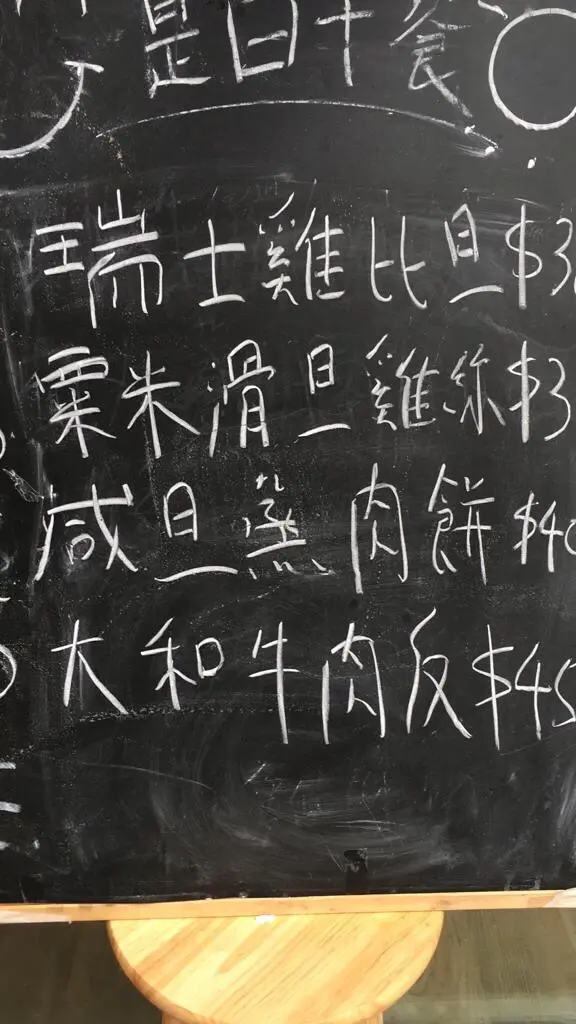 是日午餐
瑞士雞比旦 $3
粟米滑旦雞絲 $3
咸旦蒸肉餅 $40
大和牛肉反 $45